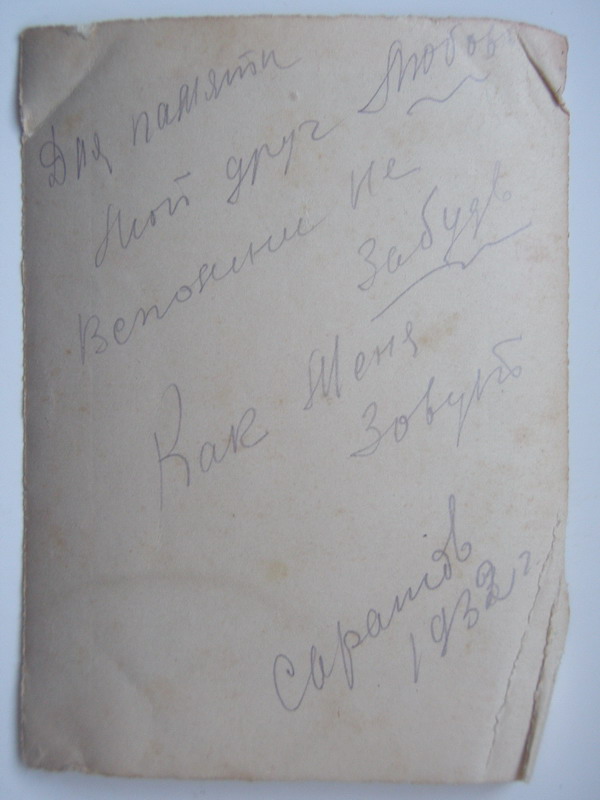 Для памяти
мой друг Любовь
Вспомни не
Забудь
Как Меня
Зовут
Саратов
1932 г